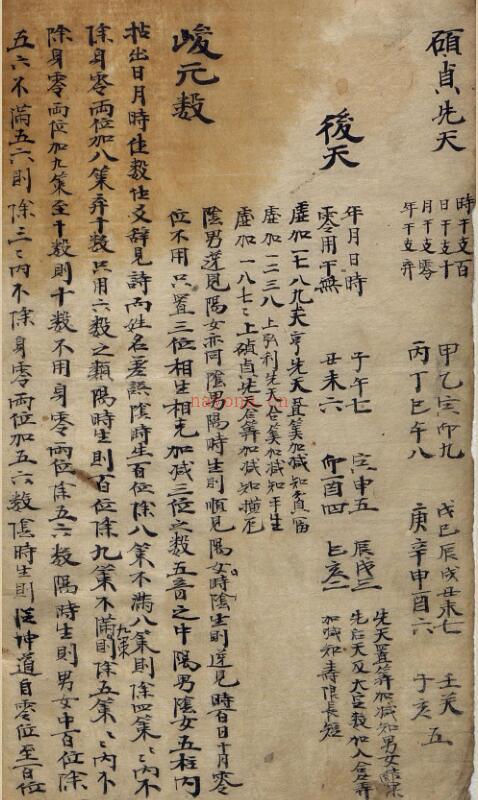 碩貞先天
時干支百
日干支十
月干支零
年干支弃
甲乙寅卯九
丙丁巳午八
戊己辰戌丑未七
庚辛申酉六
壬癸
子亥五
後天
年月日時
零用干無
子午七
丑未六
寅申五
卯酉四
辰戌三
巳亥二
先天置筭加減知男女
先后天及大定数加入合弄
加減知壽限長短
虛加一七八九大亨先天置筭加減知
虛加一二三八上弘利先天合筭加減知平生
虛加一八七二上碩貞先天合筭加減知橫厄
陰男逆見陽女亦同陰男陽時生則順見陽女時陰生則逆見時百日十月零
位不用只置三位相生相克加減三位之数五音之中陽男陰女五音內
峻元数
拈出日月時住数住文辞見詩而姓名差誤陰時生百位除八策不滿八策則除四策〻內不
除身零兩位加八策弃十数只用六数之類陽時生則百位除九策不滿九策則除五策〻內不
除身零兩位加九策至十数則十数不用身零兩位除五六数陽時生則男女中百位除
五六不滿五六則除三〻內不除身零兩位加五六数陰時生則從坤道自零位至百位